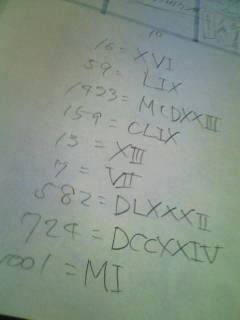 16 = XVI
59 = LIX
1423 = MCDXXIII
159 = CLIX
13 = XIII
7 = VII
582 = DLXXXII
724 = DCCXXIV
1001 = MI